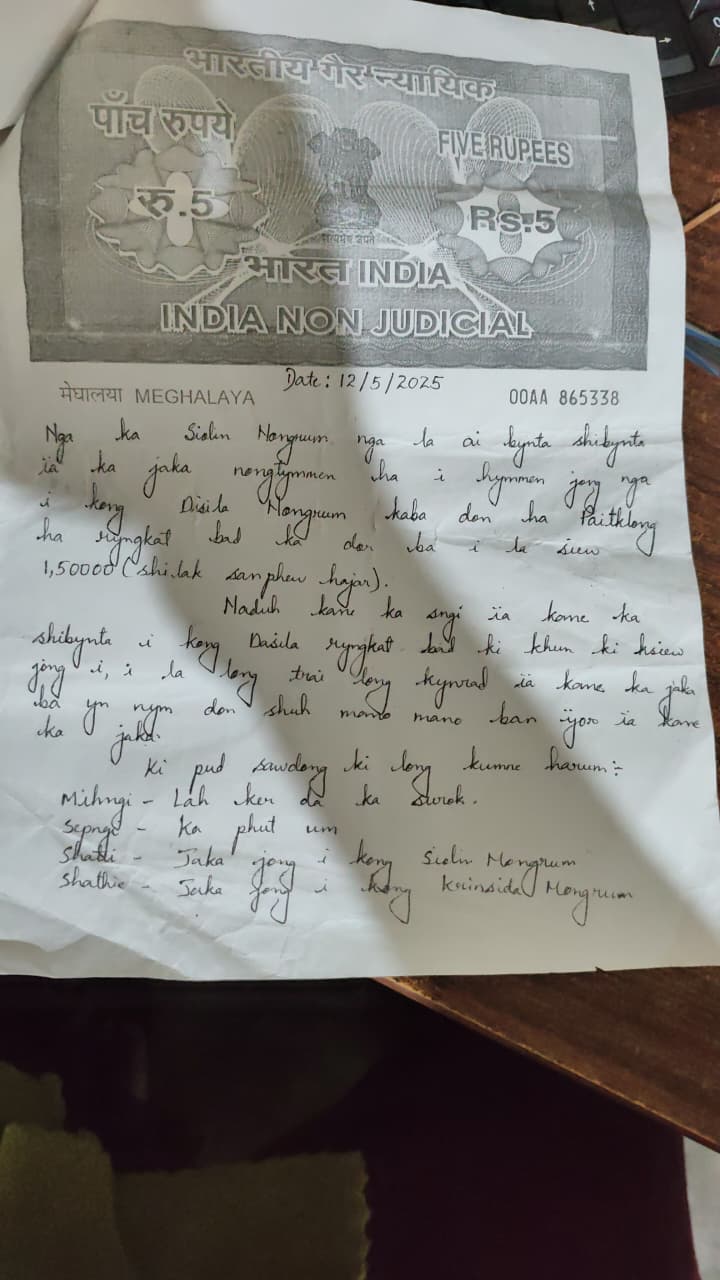 भारतीय गैर न्यायिक
पाँच रुपये
FIVE RUPEES
रु.5
Rs.5
सत्यमेव जयते
भारत INDIA
INDIA NON JUDICIAL
Date: 12/5/2025
मेघालया MEGHALAYA
00AA 865338
Nga ka Siolin Nongrum nga la ai bynta shibynta
ïa ka jaka nongtymmen ha i hymmen jong nga
i kong Disila Nongrum kaba don ha Paitklong
ha ryngkat bad ka dor ba i la siew
1,50000 (shi lak sanphew hajar).
Naduh kane ka sngi ïa kane ka
shibynta i kong Dasila ryngkat bad ki khun ki ksiew
jong i, i la long trai long kynrad ïa kane ka jaka
ba yn nym don shuh mano mano ban ïoh ïa kane
ka jaka.
Ki pud sawdong ki long kumne harum:-
Mihngi - Lah ker da ka surok.
Sepngi - Ka phut um
Shatei - Jaka jong i kong Siolin Nongrum
Shathie - Jaka jong i kong Kainsida Nongrum